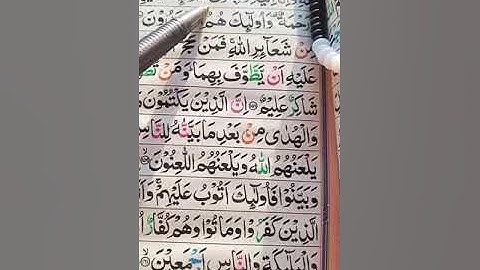 رَحْمَةٌ وَاُولٰٓئِكَ هُمُ
مِنْ شَعَآئِرِ اللّٰهِ فَمَنْ حَجَّ
عَلَيْهِ اَنْ يَّطَّوَّفَ بِهِمَا وَمَنْ
شَاكِرٌ عَلِيْمٌ اِنَّ الَّذِيْنَ يَكْتُمُوْنَ
وَالْهُدٰى مِنْ بَعْدِ مَا بَيَّنّٰهُ لِلنَّاسِ
يَلْعَنُهُمُ اللّٰهُ وَيَلْعَنُهُمُ اللّٰعِنُوْنَ
وَبَيَّنُوْا فَاُولٰٓئِكَ اَتُوْبُ عَلَيْهِمْ
الَّذِيْنَ كَفَرُوْا وَمَاتُوْا وَهُمْ كُفَّارٌ
وَالْمَلٰٓئِكَةِ وَالنَّاسِ اَجْمَعِيْنَ